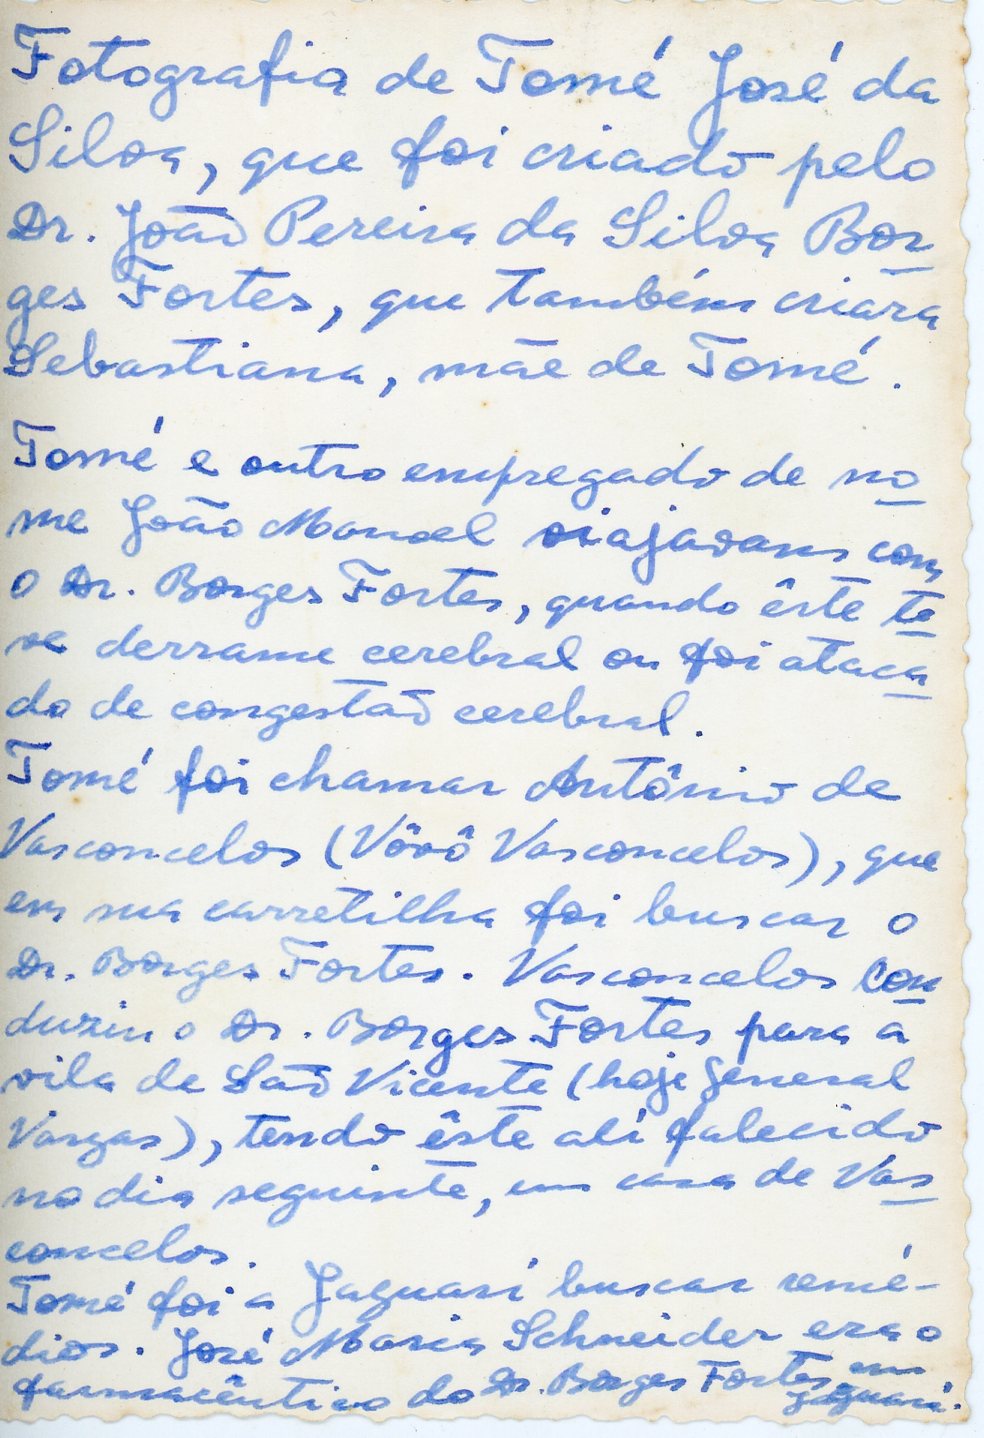 Fotografia de Tomé José da
Silva, que foi criado pelo
Dr. João Pereira da Silva Bor
ges Fortes, que também criara
Sebastiana, mãe de Tomé.
Tomé e outro empregado de no
me João Manoel viajavam com
o Dr. Borges Fortes, quando êste te
ve derrame cerebral ou foi ataca
do de congestão cerebral.
Tomé foi chamar Antônio de
Vasconcelos (Vôvô Vasconcelos), que
em sua carretilha foi buscar o
Dr. Borges Fortes. Vasconcelos con
duziu o Dr. Borges Fortes para a
vila de São Vicente (hoje General
Vargas), tendo êste ali falecido
no dia seguinte, em casa de Vas
concelos.
Tomé foi a Jaguari buscar remé-
dios. José Maria Schneider era o
farmacêutico do Dr. Borges Fortes em
Jaguari.